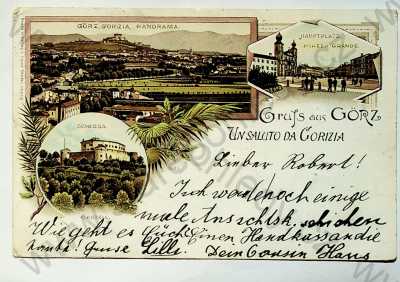 GÖRZ, GORIZIA, PANORAMA.
HAUPTPLATZ
PIAZZA GRANDE
Gruss aus GÖRZ
UN SALUTO DA GORIZIA
Lieber Robert!
Ich werde noch einige
male Ansichtsk. schicken
Wie geht es Euch? Einen Handkuss an die
Lilli. Dein Cousin Hans